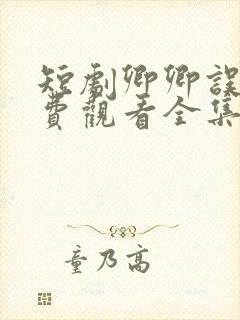 短劇卿卿誤
費觀看全集
童乃高